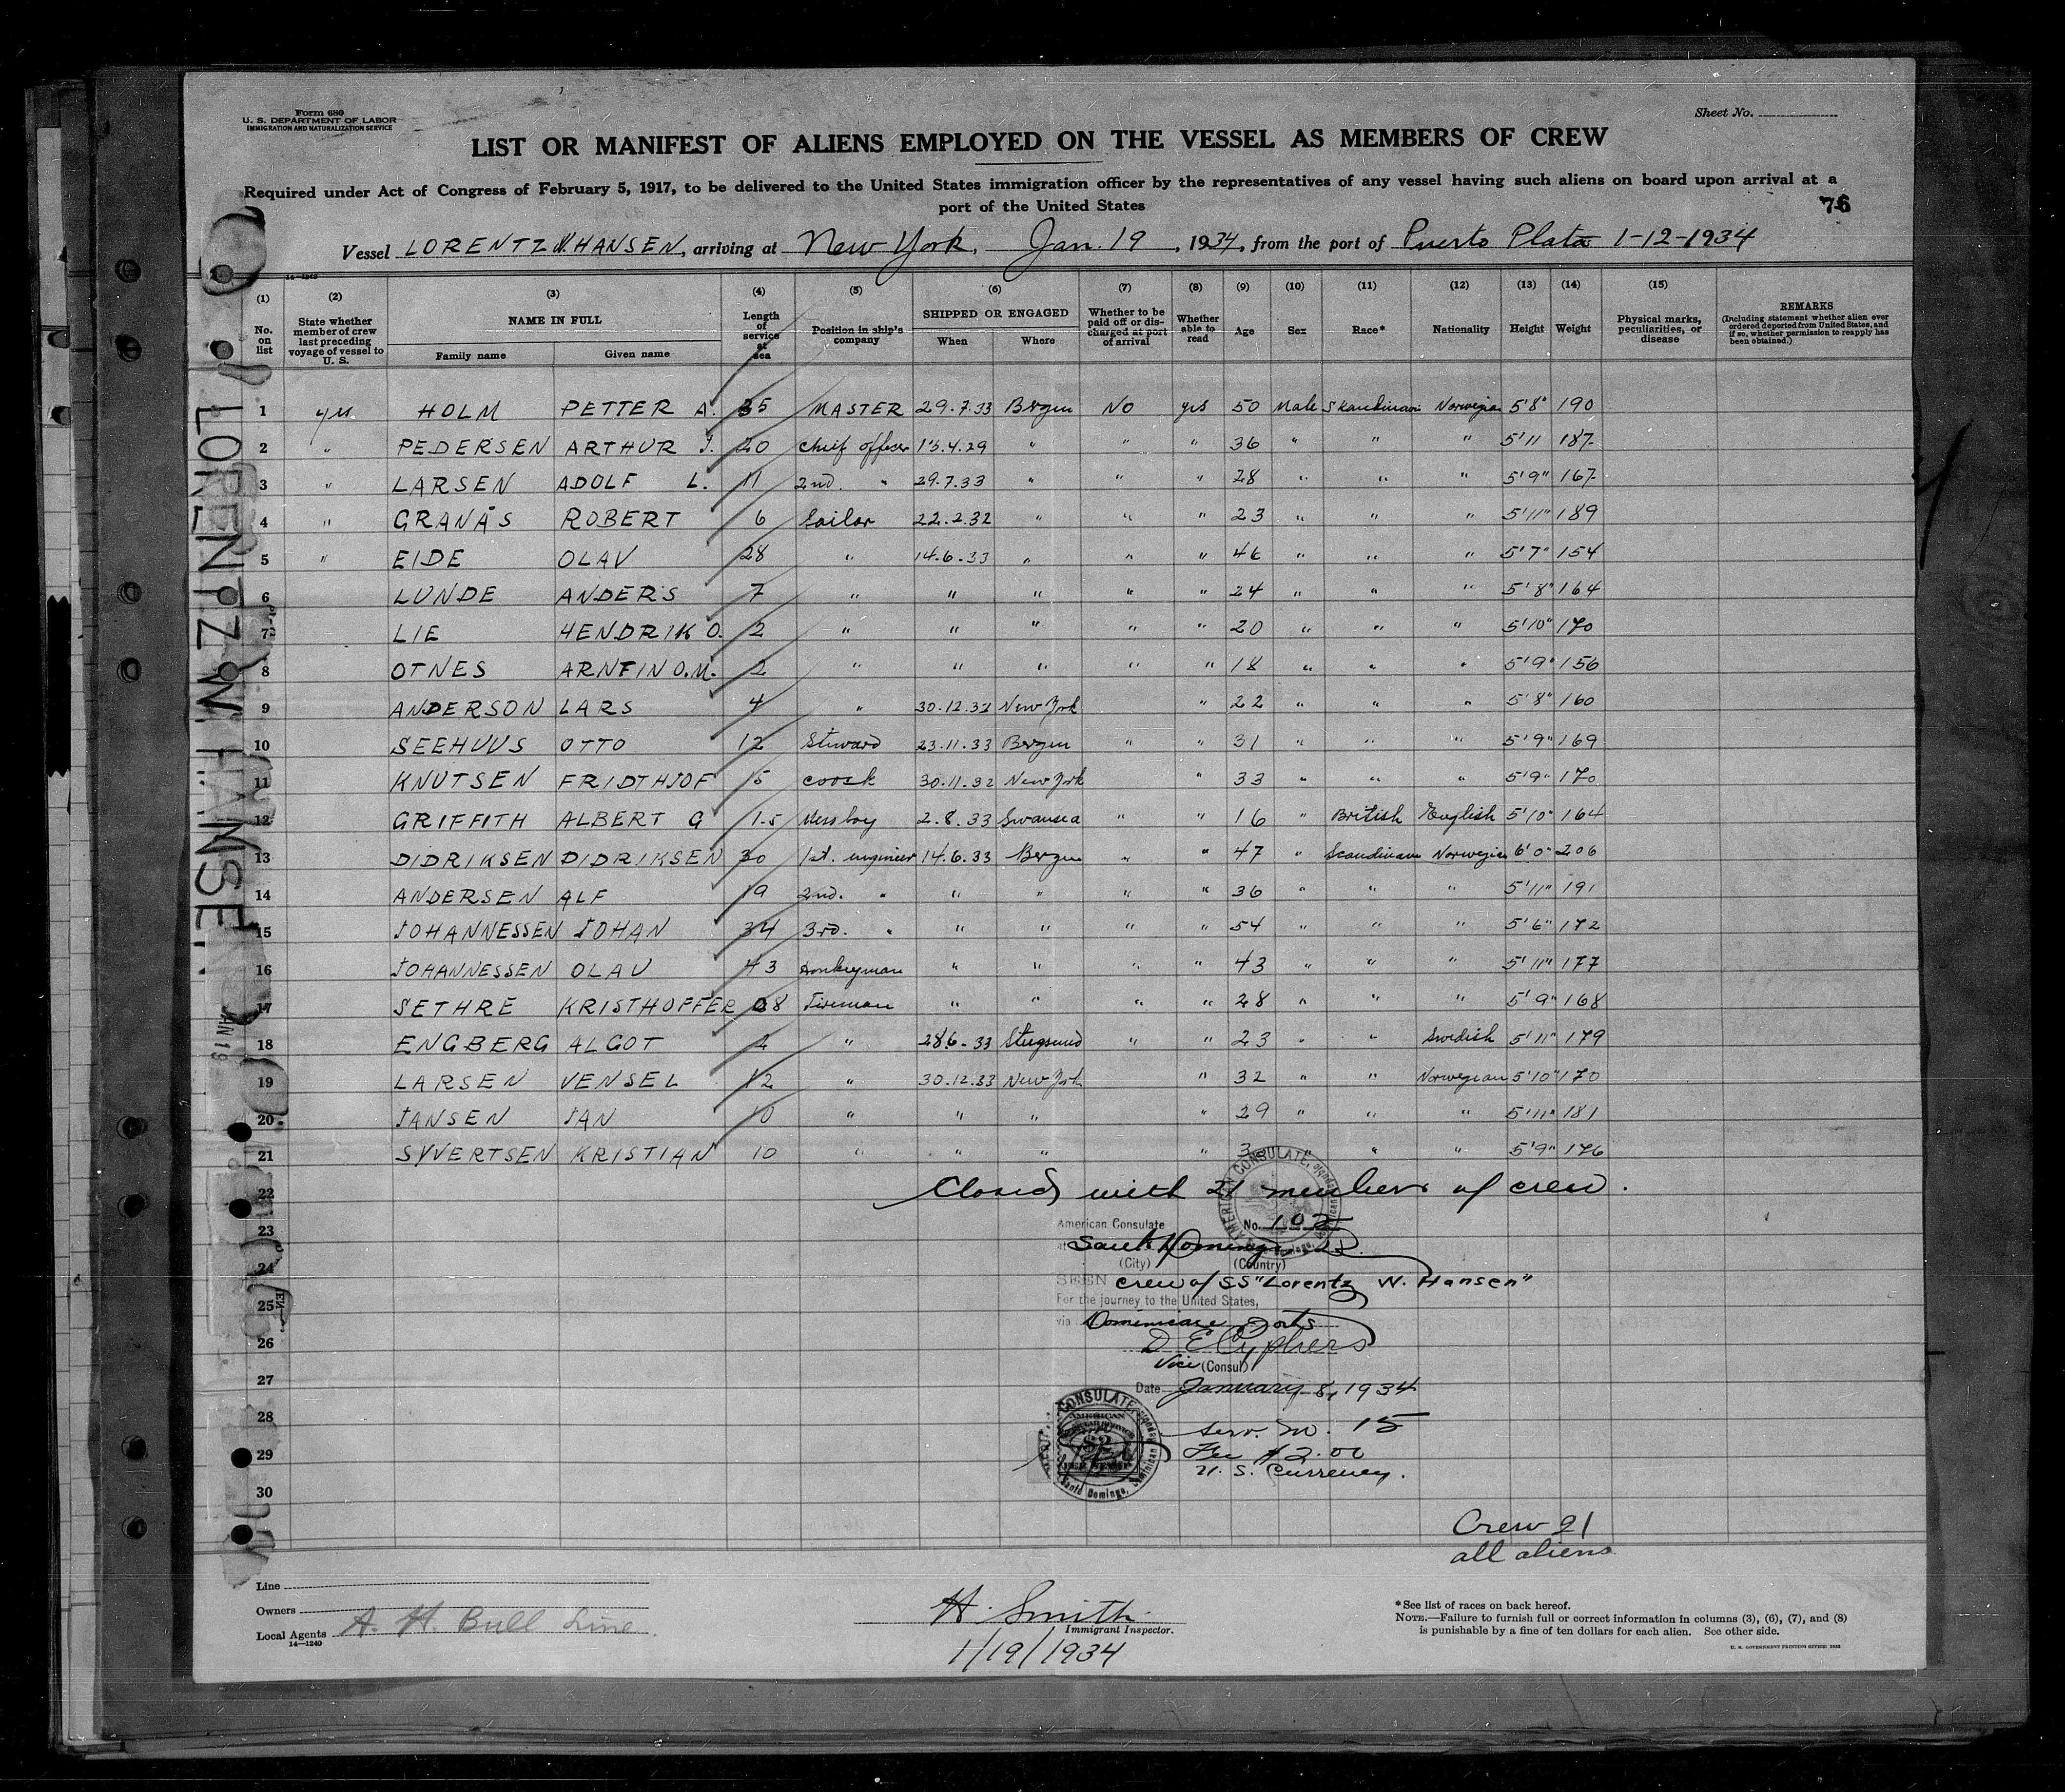 Form 680
U. S. DEPARTMENT OF LABOR
IMMIGRATION AND NATURALIZATION SERVICE
Sheet No.
LIST OR MANIFEST OF ALIENS EMPLOYED ON THE VESSEL AS MEMBERS OF CREW
Required under Act of Congress of February 5, 1917, to be delivered to the United States immigration officer by the representatives of any vessel having such aliens on board upon arrival at a
port of the United States
76
Vessel LORENTZ W. HANSEN, arriving at New York, Jan. 19, 1934, from the port of Puerto Plata 1-12-1934
14-1240
(1) (2) (3) (4) (5) (6) (7) (8) (9) (10) (11) (12) (13) (14) (15)
No. on list State whether member of crew last preceding voyage of vessel to U. S. NAME IN FULL Family name Given name Length of service at sea Position in ship's company SHIPPED OR ENGAGED When Where Whether to be paid off or discharged at port of arrival Whether able to read Age Sex Race* Nationality Height Weight Physical marks, peculiarities, or disease REMARKS (Including statement whether alien ever ordered deported from United States, and if so, whether permission to reapply has been obtained.)
1 yes HOLM PETTER A. 35 MASTER 29.7.33 Bergen No yes 50 Male Skandinavi Norwegian 5'8" 190
2 " PEDERSEN ARTHUR J. 20 Chief officer 15.4.29 " " " 36 " " " 5'11 187
3 " LARSEN ADOLF L. 11 2nd. " 29.7.33 " " " 28 " " " 5'9" 167
4 " GRANÅS ROBERT 6 Sailor 22.2.32 " " " 23 " " " 5'11" 189
5 " EIDE OLAV 28 " 14.6.33 " " " 46 " " " 5'7" 154
6 LUNDE ANDERS 7 " " " " " 24 " " " 5'8" 164
7 LIE HENDRIK O. 2 " " " " " 20 " " " 5'10" 170
8 OTNES ARNFIN O.M. 2 " " " " " 18 " " " 5'9" 156
9 ANDERSON LARS 4 " 30.12.32 New York " 22 " " " 5'8" 160
10 SEEHUUS OTTO 12 Steward 23.11.33 Bergen " " 31 " " " 5'9" 169
11 KNUTSEN FRIDTHJOF 5 coock 30.11.32 New York " 33 " " " 5'9" 170
12 GRIFFITH ALBERT G 1.5 Messboy 2.8.33 Swansea " " 16 " British English 5'10" 164
13 DIDRIKSEN DIDRIKSEN 30 1st. engineer 14.6.33 Bergen " " 47 " Scandinavn Norwegian 6'0" 206
14 ANDERSEN ALF 19 2nd. " " " " " 36 " " " 5'11" 191
15 JOHANNESSEN JOHAN 34 3rd. " " " " " 54 " " " 5'6" 172
16 JOHANNESSEN OLAV 43 Donkeyman " " " " 43 " " " 5'11" 177
17 SETHRE KRISTHOFFER 08 Fireman " " " " 28 " " " 5'9" 168
18 ENGBERG ALGOT 2 " 28.6.33 Stugsund " " 23 " " Swedish 5'11" 179
19 LARSEN VENSEL 12 " 30.12.33 New York " 32 " " Norwegian 5'10" 170
20 JANSEN JAN 10 " " " " 29 " " " 5'11" 181
21 SYVERTSEN KRISTIAN 10 " " " " " " " 5'9" 176
22 Closed with 21 members of crew.
23 American Consulate No. 102
24 Santo Domingo D.R.
(City) (Country)
SEEN crew of SS "Lorentz W. Hansen"
25 For the journey to the United States,
via Dominican Ports
26 D E Cyphers
Vice (Consul)
27 Date January 8, 1934
28 Serv. No. 15
29 Fee $2.00
U. S. Currency.
30
AMERICAN CONSULATE
CONSULATE
AMERICAN
$2
Santo Domingo, Dominican Republic
Crew 21
all aliens
Line
Owners
Local Agents A. H. Bull Line.
14-1240
H. Smith
Immigrant Inspector.
1/19/1934
*See list of races on back hereof.
NOTE.—Failure to furnish full or correct information in columns (3), (6), (7), and (8)
is punishable by a fine of ten dollars for each alien. See other side.
U. S. GOVERNMENT PRINTING OFFICE: 1932
LORENTZ W. HANSEN
JAN 19